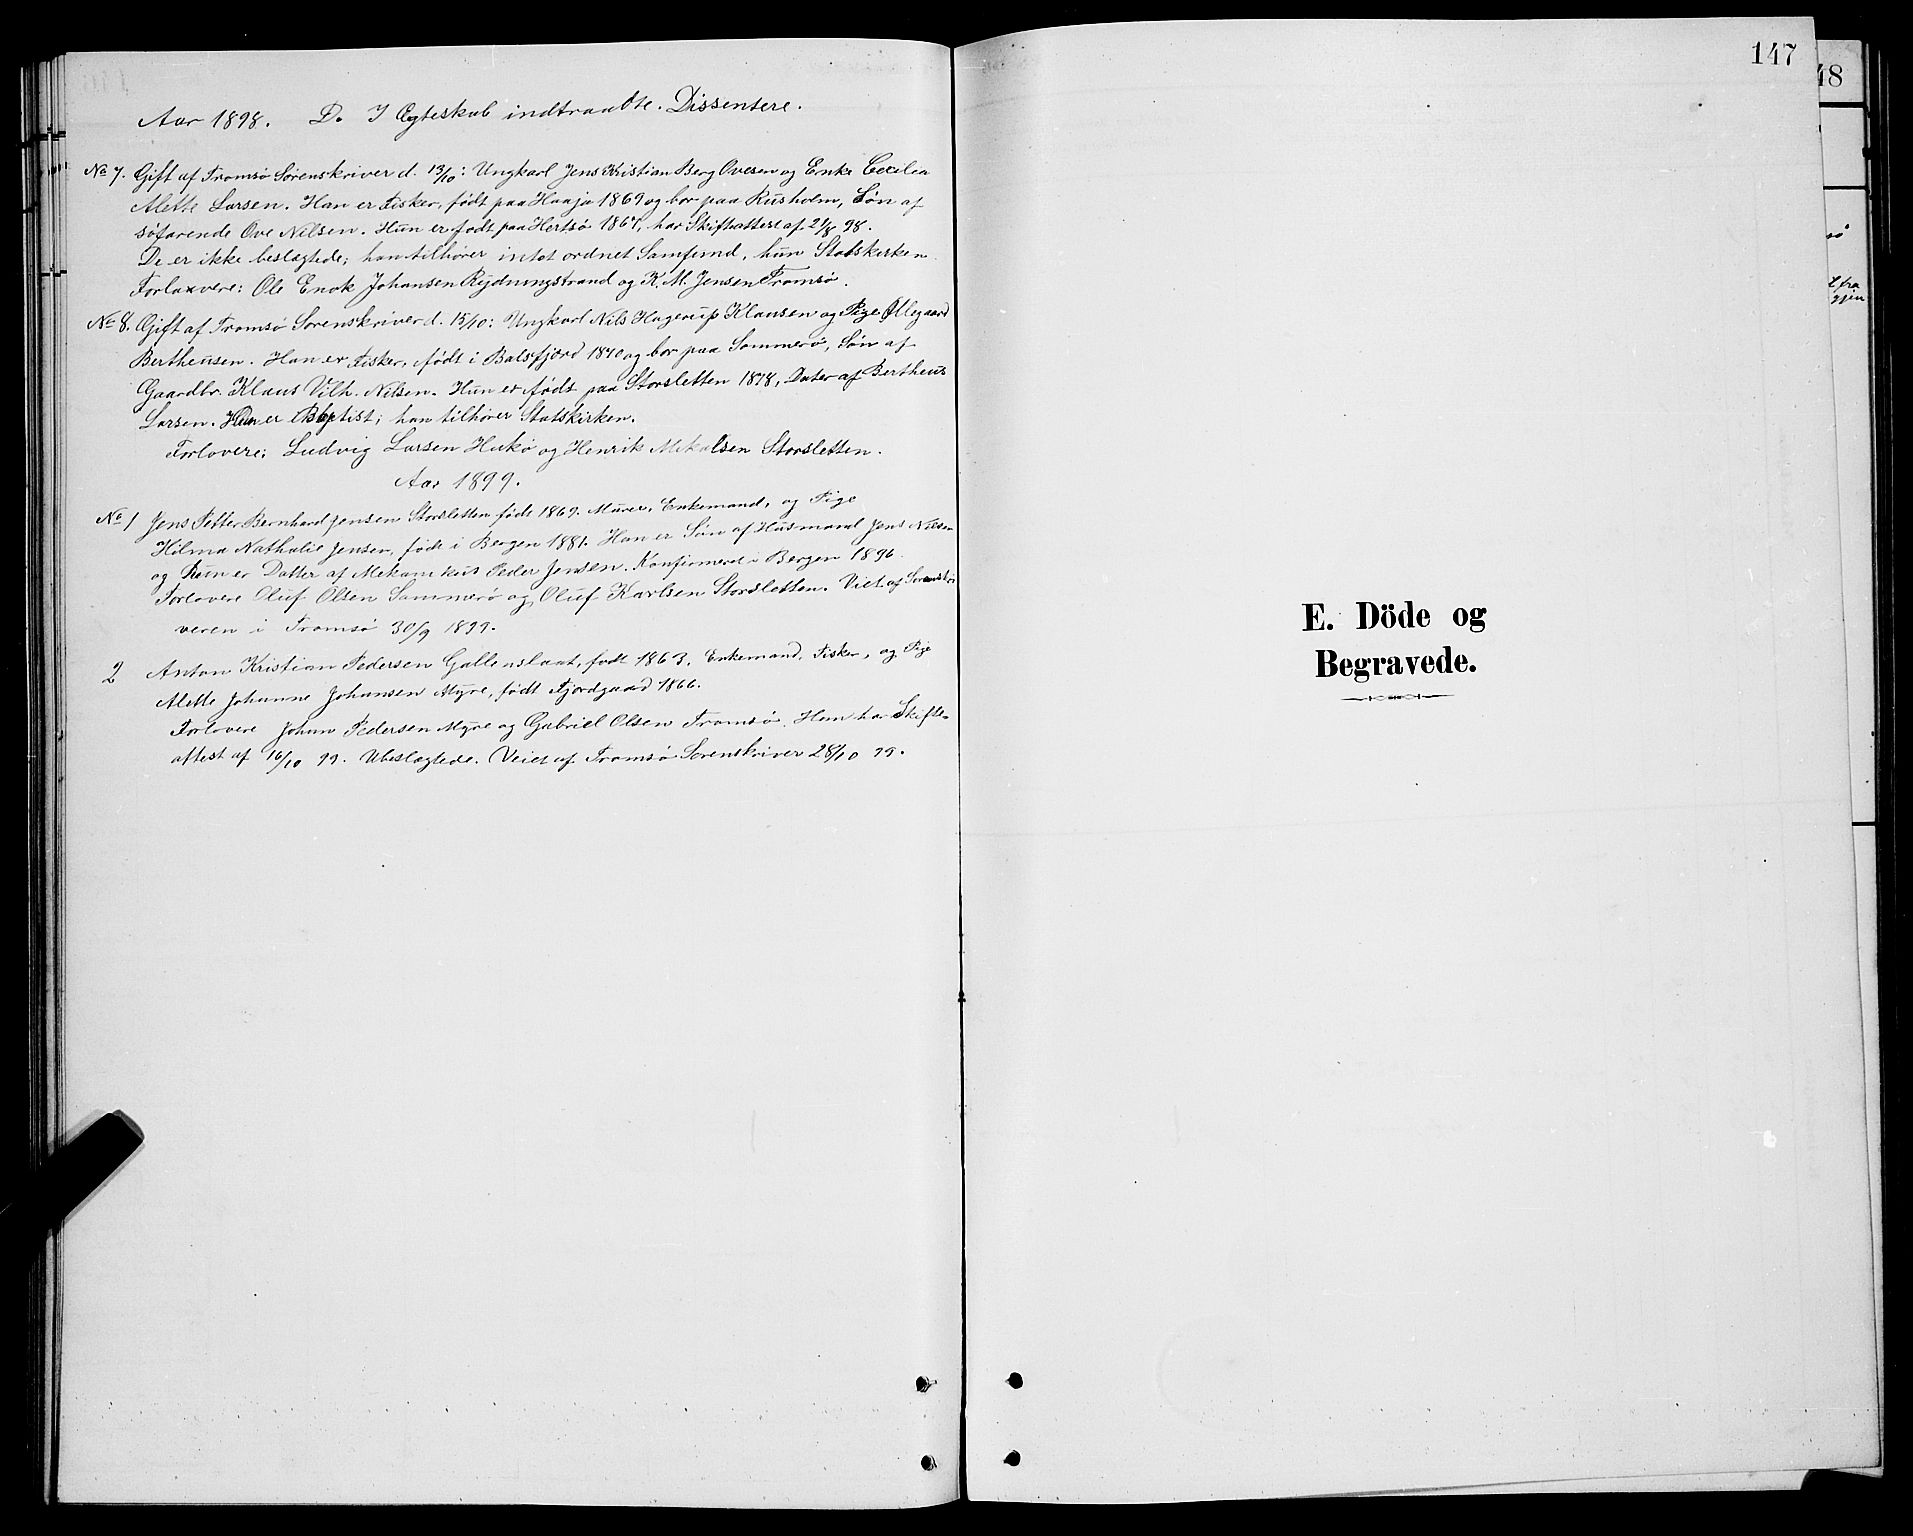 Aar 1898. D. I Egteskab indtraadte. Dissentere.
No 7. Gift af Tromsø Sørenskriver d. 13/10: Ungkarl Jens Kristian Berg Ovesen og Enke Cecilia
Alette Larsen. Han er Fisker, født paa Haaja 1869 og bor paa Rusholm, Søn af
søfarende Ove Nilsen. Hun er født paa Hertsø 1867, har Skifteattest af 2/8 98.
De er ikke beslægtede; han tilhører intet ordnet Samfund, hun Statskirken.
Forlovere: Ole Enok Johansen Rydningstrand og K. M. Jensen Tromsø.
No 8. Gift af Tromsø Sorenskriver d. 15/10: Ungkarl Nils Hagerup Klausen og Pige Øllegaard
Bertheusen. Han er Fisker, født i Balsfjord 1870 og bor paa Sommerø, Søn af
Gaardbr. Klaus Vilh. Nilsen. Hun er født paa Storsletten 1878, Dater af Bertheus
Larsen. Hun er Baptist; han tilhører Statskirken.
Forlovere: Ludvig Larsen Hukø og Henrik Mikalsen Storsletten.
Aar 1899.
No 1 Jens Petter Bernhard Jensen Storsletten født 1869. Murer, Enkemand, og Pige
Hilma Nathalie Jensen, født i Bergen 1881. Han er Søn af Husmand Jens Nilsen
og Hun er Datter af Mekanikus Peder Jensen. Konfirmeret i Bergen 1896.
Forlovere Oluf Olsen Sommerø og Oluf Karlsen Storsletten. Viet af Sorenskri
veren i Tromsø 30/9 1899.
2 Anton Kristian Pedersen født 1863, Enkemand, Fisker, og Pige
Alette Johanne Johansen Myre, født Fjordgaard 1866.
Forlovere Johan Pedersen Myre og Gabriel Olsen Tromsø. Han har Skifte-
attest af 16/10 99. Ubeslægtede. Viet af Tromsø Sorenskriver 28/10 99.
147
48
E. Döde og
Begravede.